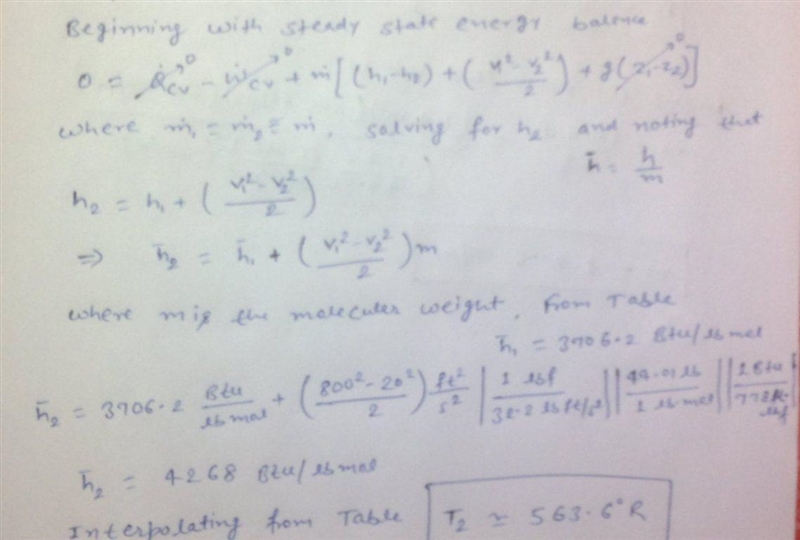 Beginning with steady state energy balence
0 = Q̇cv→0 − Ẇcv→0 + ṁ[(h₁-h₂) + (v₁² - v₂² / 2) + g(z₁-z₂)→0]
where ṁ₁ = ṁ₂ = ṁ, solving for h₂ and noting that
h̄ = h/m
h₂ = h₁ + (v₁² - v₂² / 2)
⇒ h̄₂ = h̄₁ + (v₁² - v₂² / 2)m
where m is the molecular weight, From Table
h̄₁ = 3706.2 Btu/lb mol
h̄₂ = 3706.2 Btu/lb mol + (800² - 20² / 2) ft²/s² | 1 lbf / 32.2 lb ft/s² || 44.01 lb / 1 lb mol || 1 Btu / 778 ft. lbf |
h̄₂ = 4268 Btu/lb mol
Interpolating from Table T₂ ≃ 563.6°R